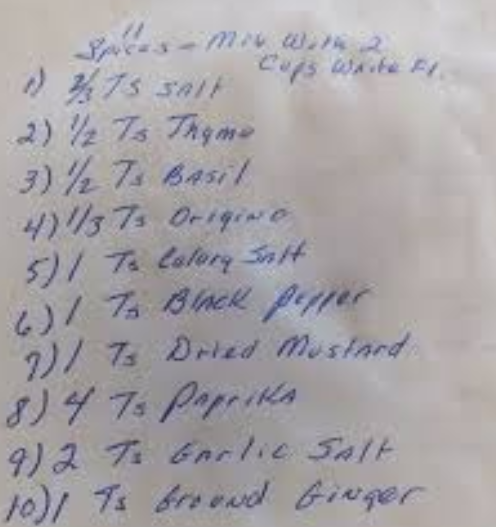 11
Spices - Mix With 2
Cups White Fl.
1) 2/3 Ts Salt
2) 1/2 Ts Thyme
3) 1/2 Ts Basil
4) 1/3 Ts Origino
5) 1 Ts Celery Salt
6) 1 Ts Black Pepper
7) 1 Ts Dried Mustard
8) 4 Ts Paprika
9) 2 Ts Garlic Salt
10) 1 Ts Ground Ginger